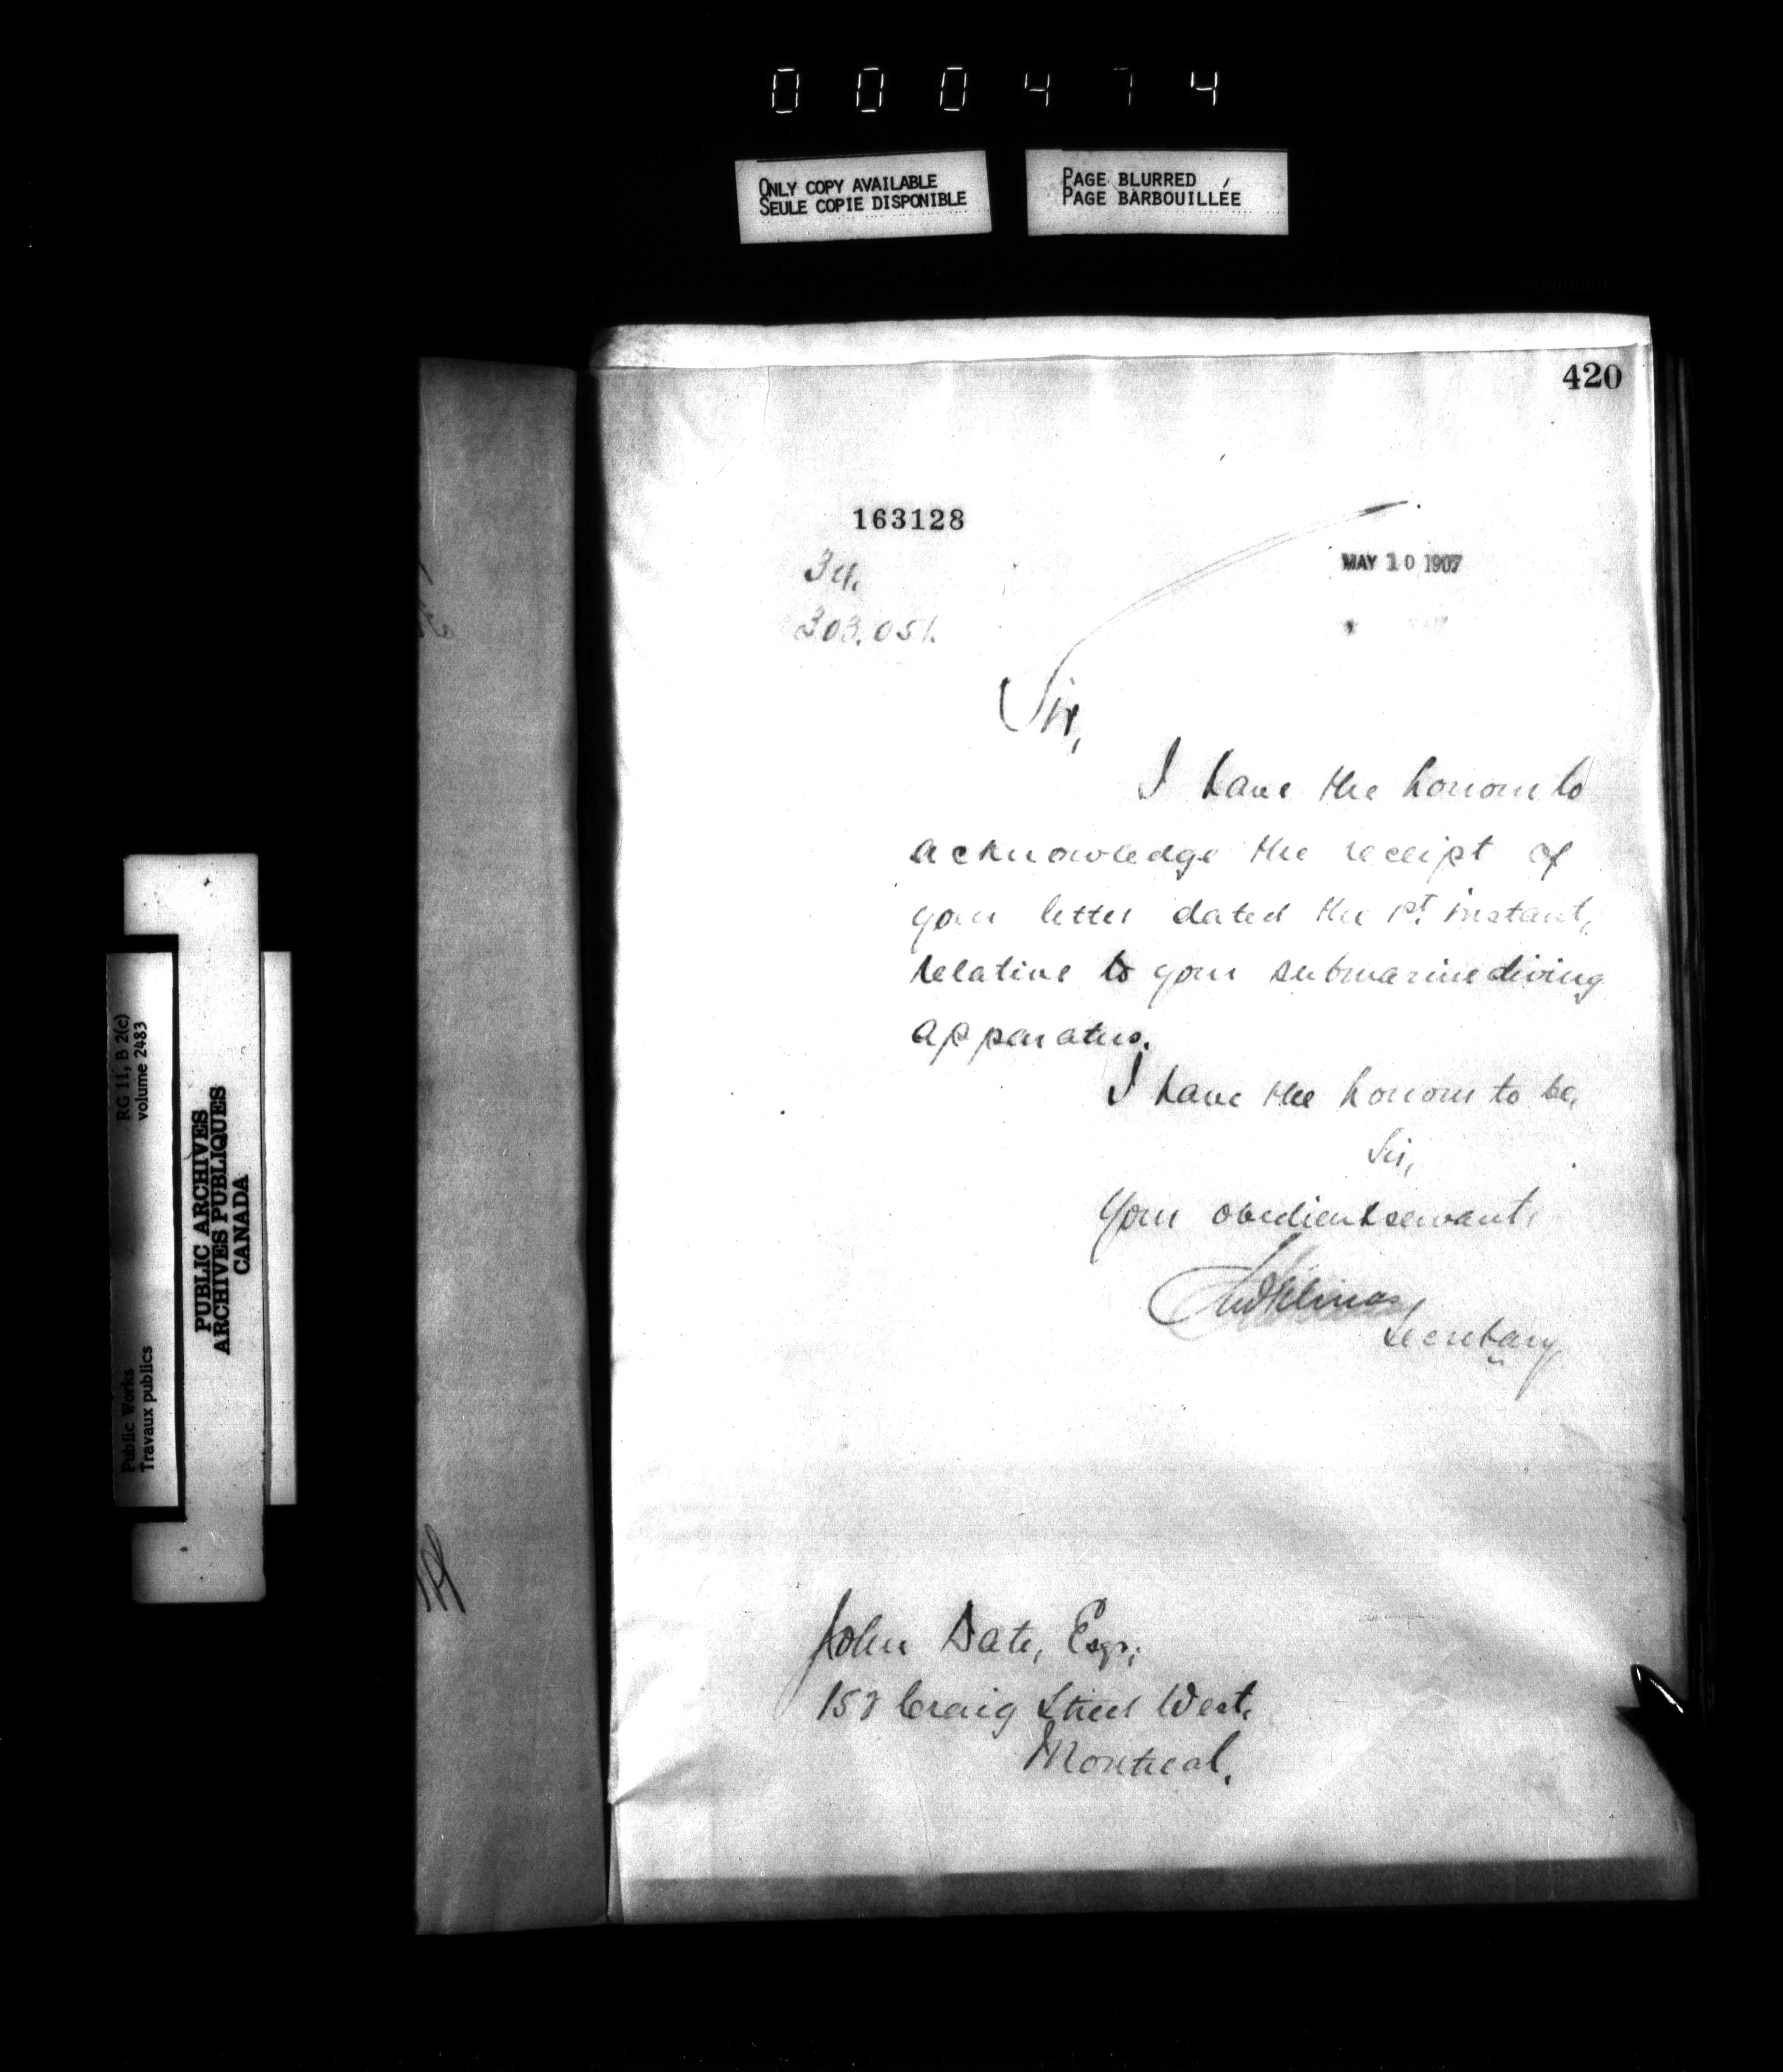 000474
ONLY COPY AVAILABLE
SEULE COPIE DISPONIBLE
PAGE BLURRED
PAGE BARBOUILLÉE
420
163128
MAY 10 1907
303.051.
Sir,
I have the honour to
acknowledge the receipt of
your letter dated the 1st. instant,
relative to your submarine diving
apparatus.
I have the honour to be,
Sir,
Your obedient servant,
Secretary
John Date, Esqr,
Craig Street West.
Montreal.
RG 11, B 2(c)
volume 2483
Public Works
Travaux publics
PUBLIC ARCHIVES
ARCHIVES PUBLIQUES
CANADA